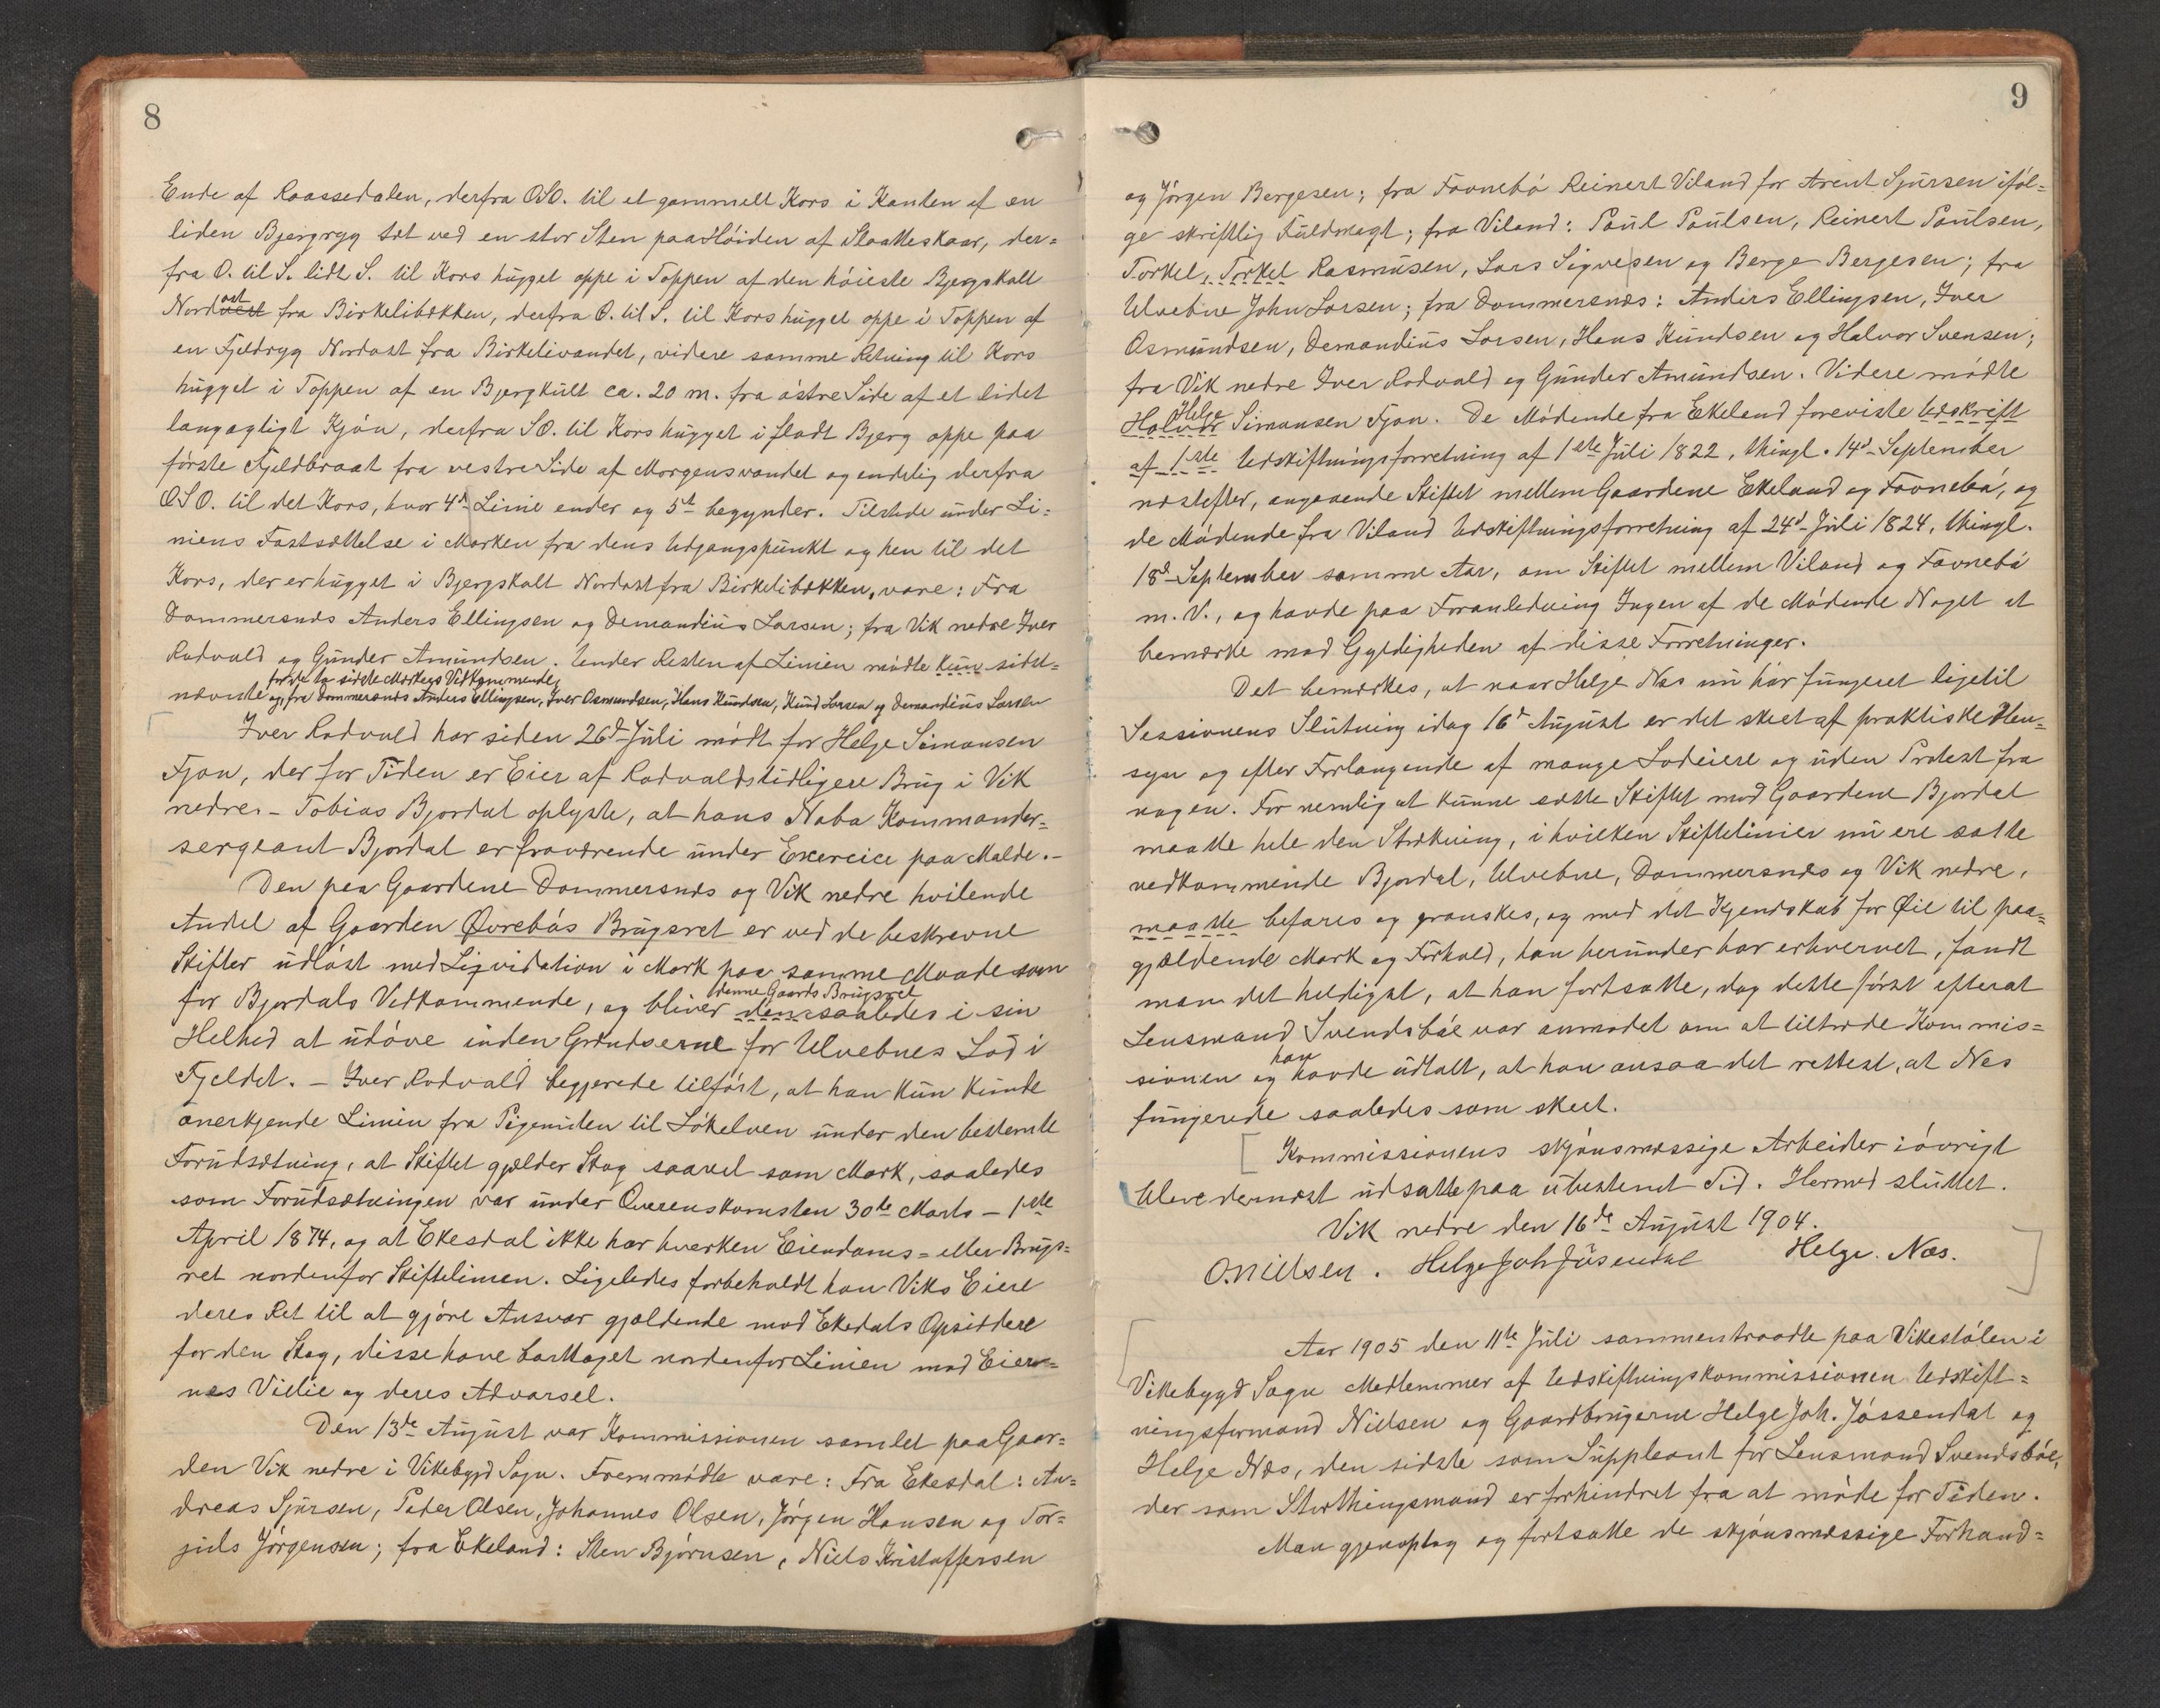 8
Ende af Raassedalen, derfra OSO. til et gammelt Kors i Kanten af en
liden Bjergryg tæt ved en stor Sten paa Høiden af Slaatteskaar, der=
fra O. til S. lidt S. til Kors hugget oppe i Toppen af den høieste Bjergskalt
Nordvest ost fra Birkelibækken, derfra O. til S. til Kors hugget oppe i Toppen af
en Fjeldryg Nordost fra Birkelivandet, videre samme Retning til Kors
hugget i Toppen af en Bjergkult ca. 20 m. fra østre Side af et lidet
langagtigt Kjøn, derfra SO. til Kors hugget i fladt Bjerg oppe paa
første Fjeldbraat fra vestre Side af Morgensvandet og endelig derfra
OSO. til det Kors, hvor 4d Linie ender og 5te begynder. Tilstede under Li=
niens Fastsættelse i Marken fra dens Udgangspunkt og hen til det
Kors, der er hugget i Bjergskalt Nordost fra Birkelibækken, vare: Fra
Dommersnæs Anders Ellingsen og Demandius Larsen; fra Vik nedre Iver
Rodvald og Gunder Amundsen. Under Resten af Linien mødte kun sidst=
for de to sidste Mærkers Vidkommende
nævnte og fra Dommersnæs Anders Ellingsen, Iver Osmundsen, Hans Knudsen, Knud Larsen og Demandius Larsen
Iver Rodvald har siden 26d Juli mødt for Helge Simonsen
Fjon, der for Tiden er Eier af Rodvalds tidligere Brug i Vik
nedre. - Tobias Bjordal oplyste, at hans Nabo Kommandér=
sergeant Bjordal er fraværende under Exercice paa Malde. -
Den paa Gaardene Dommersnæs og Vik nedre hvilende
Andel af Gaarden Øvrebøs Brugsret er ved de beskrevne
Skifter udløst med Liqvidation i Mark paa samme Maade som
for Bjordals Vedkommende, og bliver den denne Gaards Brugsret saaledes i sin
Helhed at udøve inden Grændserne for Ulvebnes Lod i
Fjeldet. - Iver Rodvald begjerede tilført, at han kun kunde
anerkjende Linien fra Pigemilen til Løkelven under den bestemte
Forudsætning, at Skiftet gjælder Skog saavel som Mark, saaledes
som Forudsætningen var under Overenskomsten 30te Marts - 1ste
April 1874, og at Ekesdal ikke har hverken Eiendoms- eller Brugs=
ret nordenfor Skiftelinien. Ligeledes forbeholdt han Viks Eiere
deres Ret til at gjøre Ansvar gjældende mod Ekedals Opsiddere
for den Skog, disse have borttaget nordenfor Linien mod Eier=
nes Villie og deres Advarsel.
Den 13de August var Kommissionen samlet paa Gaar=
den Vik nedre i Vikebygd Sogn. Fremmødte vare: Fra Ekesdal: An=
dreas Sjursen, Peder Olsen, Johannes Olsen, Jørgen Hansen og Tor=
juls Jørgensen; fra Ekeland: Sten Bjørnsen, Niels Kristoffersen
9
og Jørgen Bergesen; fra Fovnebø Reinert Viland for Arent Sjursen iføl=
ge skriftlig Fuldmagt; fra Viland: Poul Poulsen, Reinert Poulsen,
Torkel, Torkel Rasmusen, Lars Sigvesen og Berge Bergesen; fra
Ulvebne John Larsen; fra Dommersnæs: Anders Ellingsen, Iver
Osmundsen, Demandius Larsen, Hans Knudsen og Halvor Svensen;
fra Vik nedre Iver Rodvald og Gunder Amundsen. Videre mødte
Halvor Helge Simonsen Fjon. De Mødende fra Ekeland foreviste Udskrift
af 1ste Udskiftningsforretning af 1ste Juli 1822, thingl. 14d September
næstefter, angaaende Skiftet mellem Gaardene Ekeland og Fovnebø, og
de Mødende fra Viland Udskiftningsforretning af 24d Juli 1824, thingl.
18d September samme Aar, om Skiftet mellem Viland og Fovnebø
m. V., og havde paa Foranledning Ingen af de Mødende Noget at
bemærke mod Gyldigheden af disse Forretninger.
Det bemærkes, at naar Helge Næs nu har fungeret ligetil
Sessionens Slutning idag 16d August er det skeet af praktiske Hen=
syn og efter Forlangende af mange Lodeiere og uden Protest fra
nogen. For nemlig at kunne sætte Skiftet mod Gaardene Bjordal
maatte hele den Strækning, i hvilken Skiftelinier nu ere satte
vedkommende Bjordal, Ulvebne, Dommersnæs og Vik nedre,
maatte befares og granskes, og med det Kjendskab for Øie til paa=
gjældende Mark og Forhold, han herunder har erhvervet, fandt
man det heldigst, at han fortsatte, dog dette først efterat
Lensmand Svendsbøe var anmodet om at tiltræde Kommis=
sionen og han havde udtalt, at han ansaa det rettest, at Næs
fungerede saaledes som skeet.
Kommissionens skjønsmæssige Arbeider iøvrigt
bleve dernæst udsatte paa ubestemt Tid. Hermed sluttet.
Vik nedre den 16de August 1904.
O. Nielsen. Helge Joh Jøsendal Helge. Næs.
Aar 1905 den 11te Juli sammentraadte paa Vikestølen i
Vikebygd Sogn Medlemmer af Udskiftningskommissionen Udskift=
ningsformand Nielsen og Gaardbrugerne Helge Joh. Jøssendal og
Helge Næs, den sidste som Suppleant for Lensmand Svendsbøe,
der som Storthingsmand er forhindret fra at møde for Tiden.
Man gjenoptog og fortsatte de skjønsmæssige Forhand=